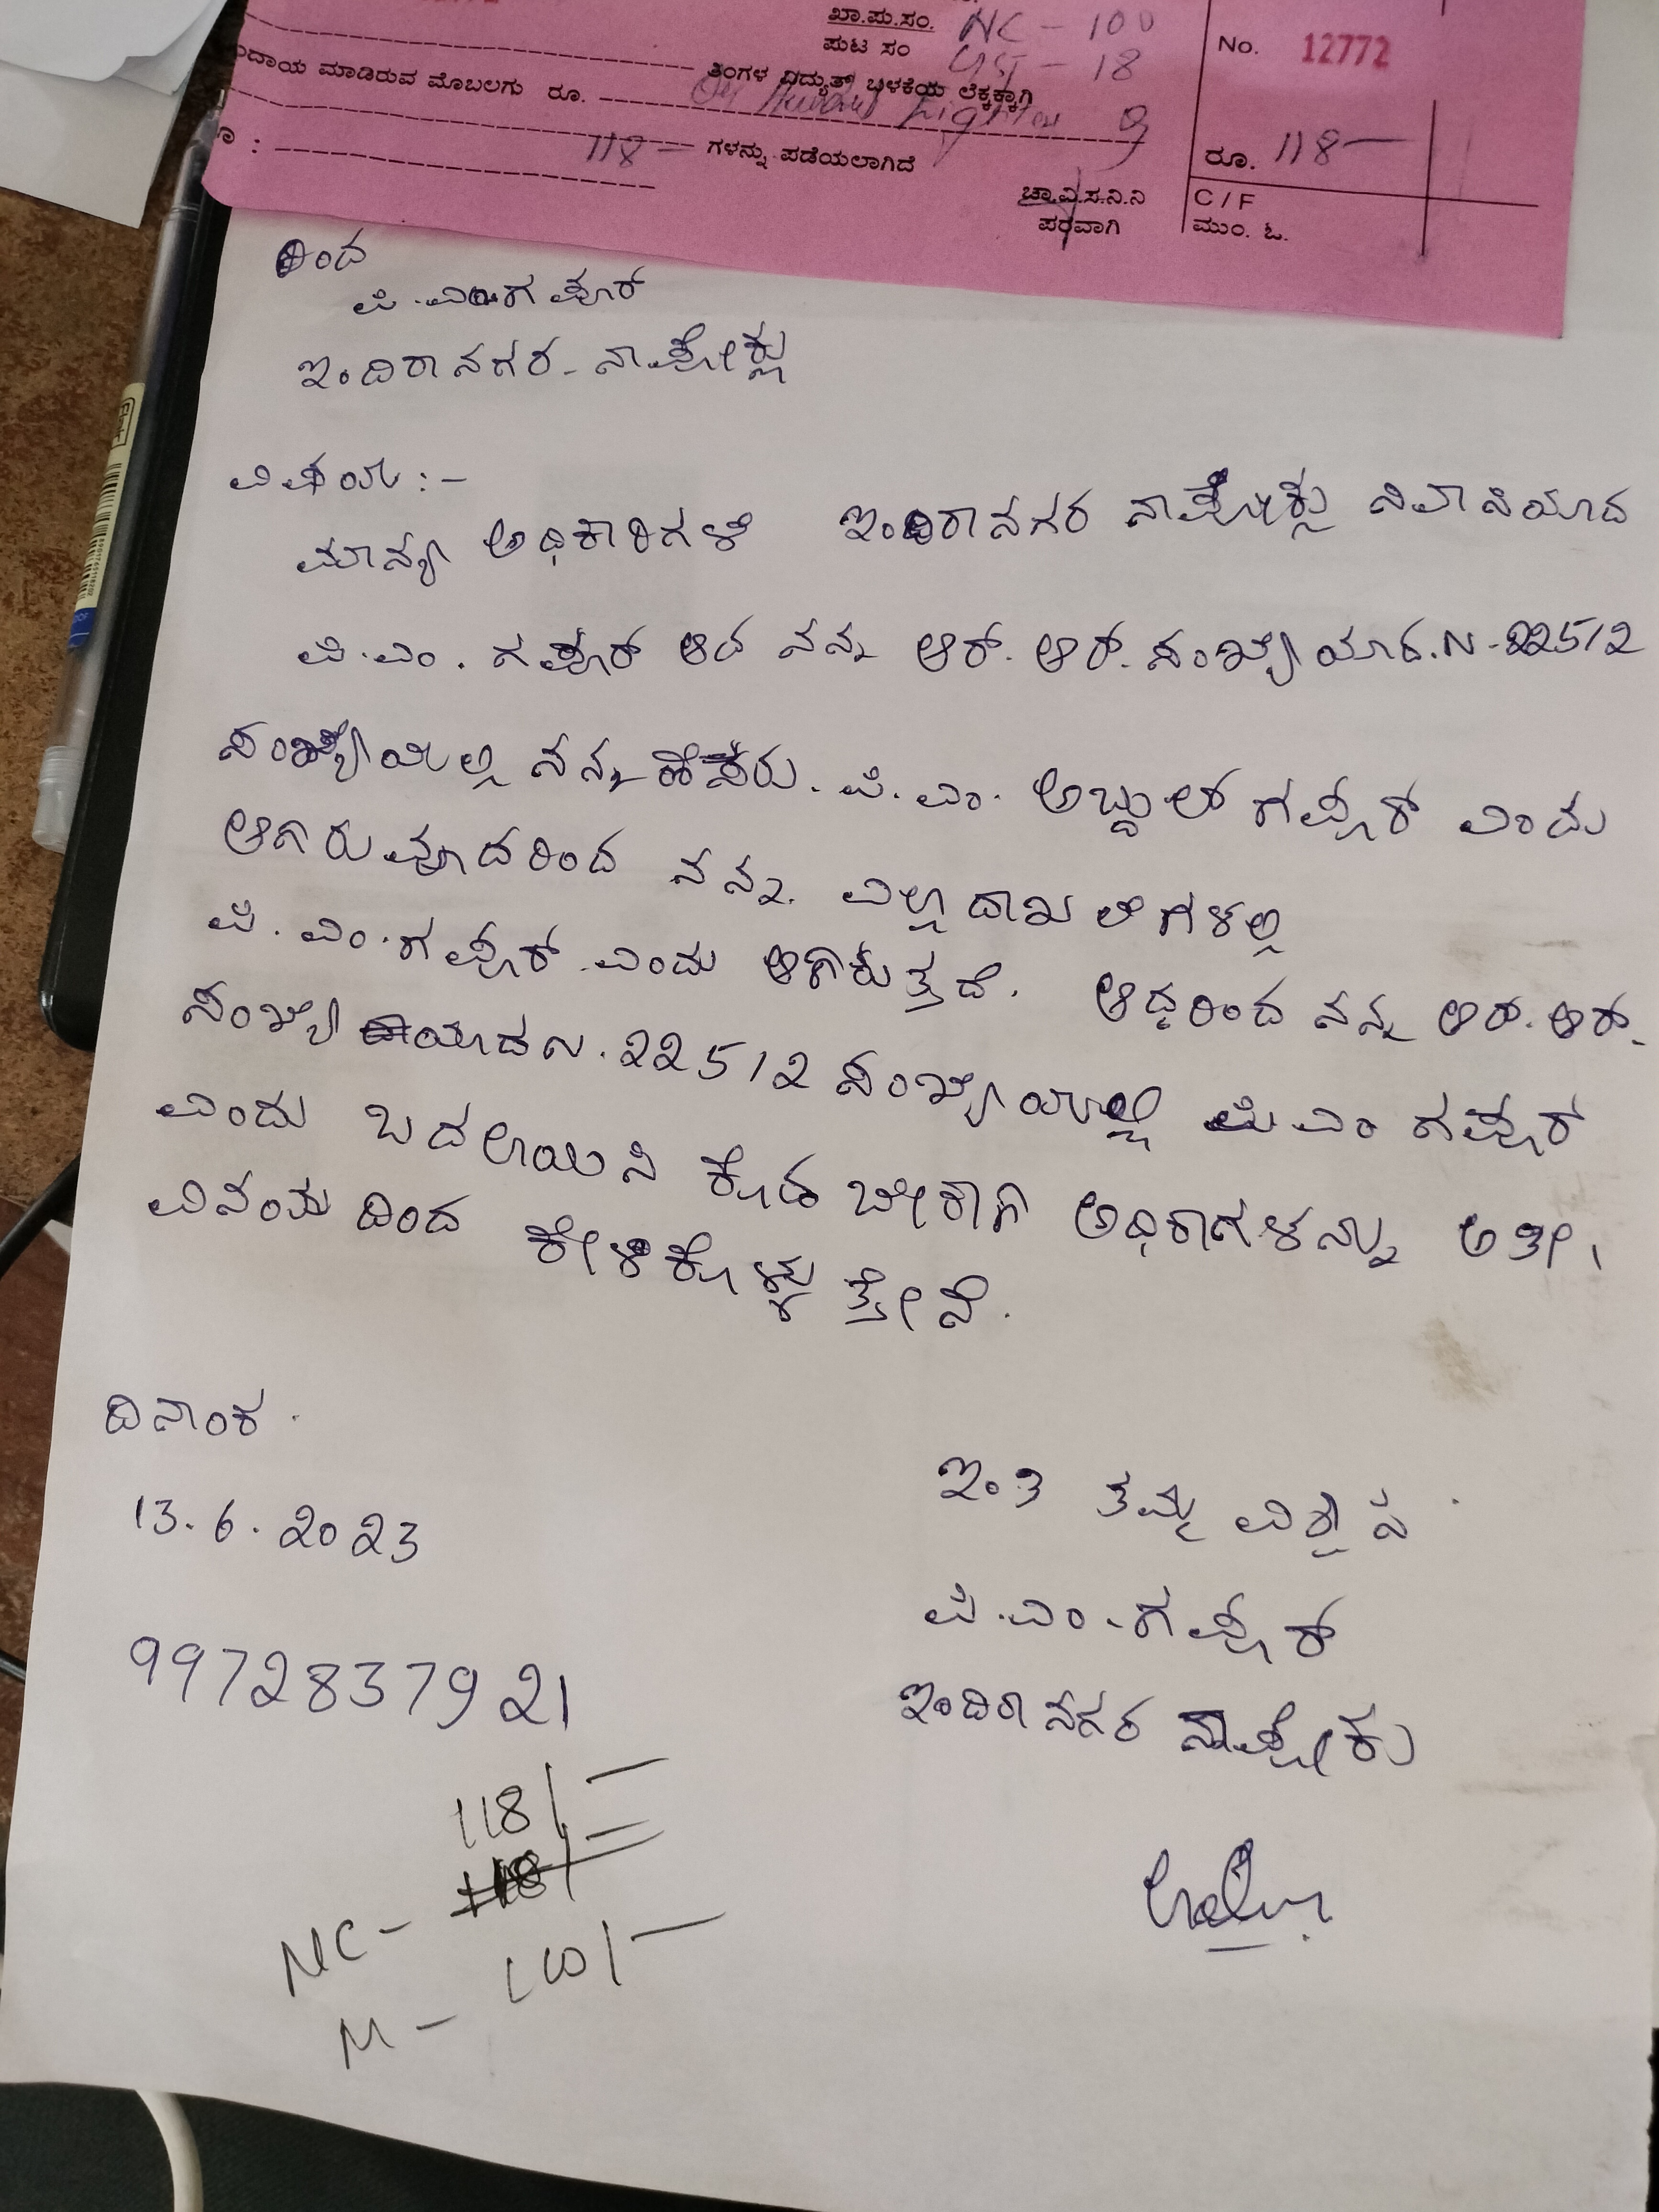 ಖಾ.ಪು.ಸಂ. NC - 100
ಪುಟ ಸಂ GST - 18
No. 12772
ತಿಂಗಳ ವಿದ್ಯುತ್ ಬಳಕೆಯ ಲೆಕ್ಕಕ್ಕಾಗಿ
ದಾಯ ಮಾಡಿರುವ ಮೊಬಲಗು ರೂ. One Hundred Eighteen
118 — ಗಳನ್ನು ಪಡೆಯಲಾಗಿದೆ
ರೂ. 118 —
ಚಾ.ವಿ.ಸ.ನಿ.ನಿ
ಪರವಾಗಿ
C / F
ಮುಂ. ಓ.
ರಿಂದ
ಪಿ.ಎಂ.ಗಫೂರ್
ಇಂದಿರಾನಗರ - ನಾಪೋಕ್ಲು
ವಿಷಯ :-
ಮಾನ್ಯ ಅಧಿಕಾರಿಗಳೆ ಇಂದಿರಾನಗರ ನಾಪೋಕ್ಲು ನಿವಾಸಿಯಾದ
ಪಿ.ಎಂ. ಗಫೂರ್ ಆದ ನನ್ನ ಆರ್. ಆರ್. ಸಂಖ್ಯೆಯಾದ.N-22512
ಸಂಖ್ಯೆಯಲ್ಲಿ ನನ್ನ ಹೆಸರು. ಪಿ. ಎಂ. ಅಬ್ದುಲ್ ಗಫೂರ್ ಎಂದು
ಆಗಿರುವುದರಿಂದ ನನ್ನ. ಎಲ್ಲಾ ದಾಖಲೆಗಳಲ್ಲಿ
ಪಿ. ಎಂ.ಗಫೂರ್ ಎಂದು ಆಗಿರುತ್ತದೆ. ಆದ್ದರಿಂದ ನನ್ನ ಆರ್.ಆರ್.
ಸಂಖ್ಯೆಯಾದ N.22512 ಸಂಖ್ಯೆಯಲ್ಲಿ ಪಿ ಎಂ ಗಫೂರ್
ಎಂದು ಬದಲಾಯಿಸಿ ಕೊಡಬೇಕಾಗಿ ಅಧಿಕಾಗಳನ್ನು ಅತೀ
ವಿನಂಯದಿಂದ ಕೇಳಿಕೊಳ್ಳುತ್ತೇನೆ.
ದಿನಾಂಕ.
13.6.2023
ಇಂತಿ ತಮ್ಮ ವಿಶ್ವಾಸಿ
ಪಿ.ಎಂ.ಗಫೂರ್
9972837921
ಇಂದಿರಾನಗರ ನಾಪೋಕು
118/—
NC - 118/
M - 100/—